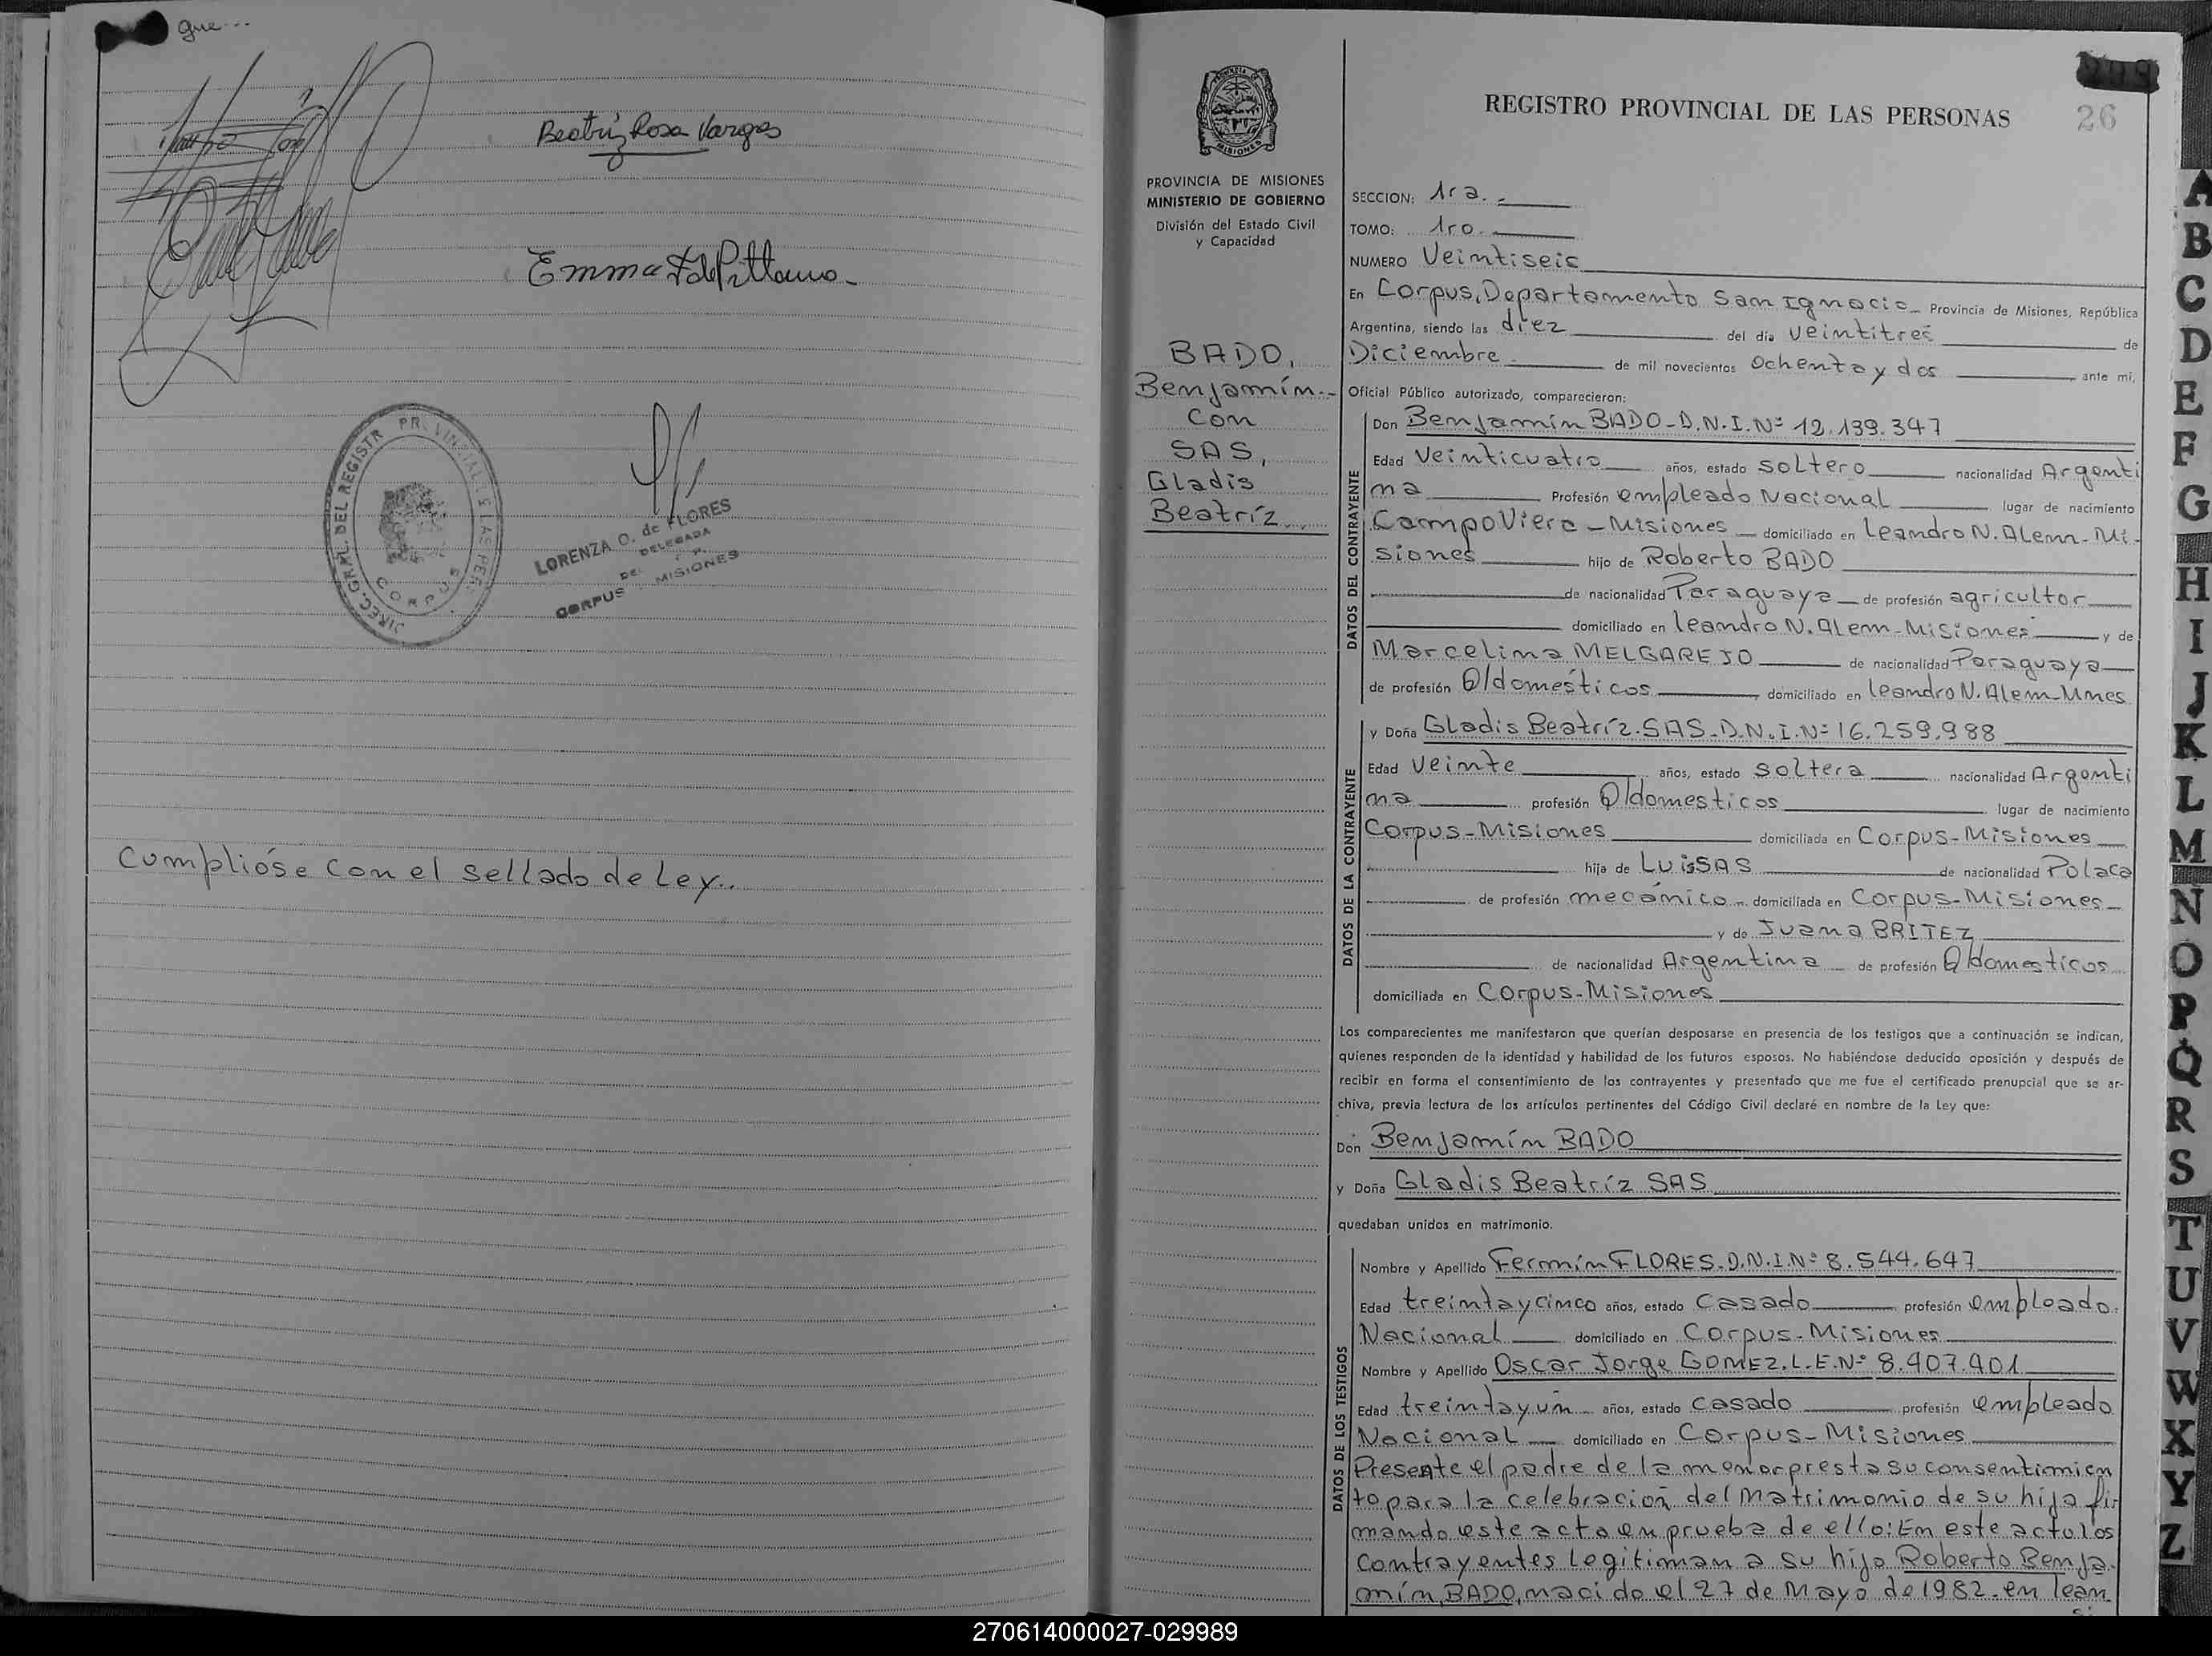 que...
Beatríz Rosa Vargas
Emma F de Pittana
DIREC. GRAL. DEL REGISTR PROVINCIAL DE LAS PER
CORPUS
LORENZA O. de FLORES
DELEGADA
DEL R. P.
CORPUS MISIONES
Cumplióse con el sellado de Ley..
PROVINCIA DE MISIONES
MISIONES
PROVINCIA DE MISIONES
MINISTERIO DE GOBIERNO
División del Estado Civil
y Capacidad
BADO,
Benjamín.-
Con
SAS,
Gladis
Beatríz..
REGISTRO PROVINCIAL DE LAS PERSONAS 26
SECCION: 1ra.-
TOMO: 1ro.
NUMERO Veintiseis
En Corpus, Departamento San Ignacio- Provincia de Misiones, República
Argentina, siendo las diez del día veintitres de
Diciembre de mil novecientos ochenta y dos ante mi,
Oficial Público autorizado, comparecieron:
DATOS DEL CONTRAYENTE
Don Benjamín BADO-D.N.I.Nº 12.139.347
Edad veinticuatro años, estado soltero nacionalidad Argenti
na Profesión empleado Nacional lugar de nacimiento
Campo Viera-Misiones domiciliado en Leandro N. Alem-Mi-
siones hijo de Roberto BADO
de nacionalidad Paraguaya de profesión agricultor
domiciliado en Leandro N. Alem-Misiones y de
Marcelina MELGAREJO de nacionalidad Paraguaya
de profesión Q/domésticos domiciliado en Leandro N. Alem-Mnes
DATOS DE LA CONTRAYENTE
y Doña Gladis Beatríz.SAS-D.N.I.Nº 16.259.988
Edad veinte años, estado soltera nacionalidad Argenti
na profesión Q/domesticos lugar de nacimiento
Corpus-Misiones domiciliada en Corpus-Misiones
hija de Luis SAS de nacionalidad Polaca
de profesión mecánico domiciliada en Corpus-Misiones-
y de Juana BRITEZ
de nacionalidad Argentina de profesión Q/domesticos
domiciliada en Corpus-Misiones
Los comparecientes me manifestaron que querían desposarse en presencia de los testigos que a continuación se indican,
quienes responden de la identidad y habilidad de los futuros esposos. No habiéndose deducido oposición y después de
recibir en forma el consentimiento de los contrayentes y presentado que me fue el certificado prenupcial que se ar-
chiva, previa lectura de los artículos pertinentes del Código Civil declaré en nombre de la Ley que:
Don Benjamín BADO
y Doña Gladis Beatríz SAS
quedaban unidos en matrimonio.
DATOS DE LOS TESTIGOS
Nombre y Apellido Fermín FLORES-D.N.I.Nº 8.544.647
Edad treinta y cinco años, estado casado profesión empleado
Nacional domiciliado en Corpus-Misiones
Nombre y Apellido Oscar Jorge GOMEZ.L.E.Nº 8.407.401
Edad treinta y un años, estado casado profesión empleado
Nacional domiciliado en Corpus-Misiones
Presente el padre de la menor presta su consentimien
to para la celebración del matrimonio de su hija fir
mando este acto en prueba de ello: En este acto los
contrayentes legitiman a su hijo Roberto Benja-
mín, BADO, nacido el 27 de Mayo de 1982-en Lean
A
B
C
D
E
F
G
H
I
J
K
L
M
N
O
P
Q
R
S
T
U
V
W
X
Y
Z
270614000027-029989